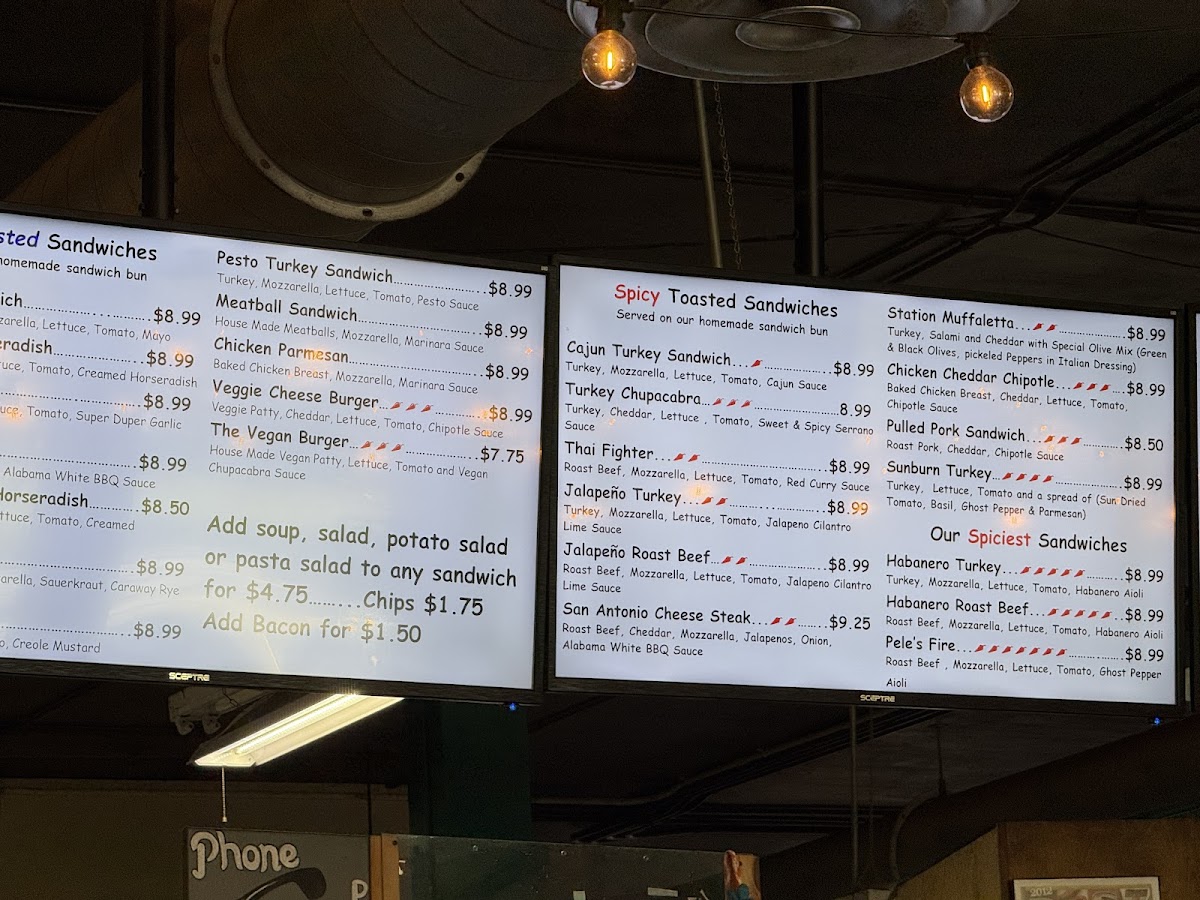 sted Sandwiches
homemade sandwich bun
ich.....................$8.99
zarella, Lettuce, Tomato, Mayo
eradish................$8.99
uce, Tomato, Creamed Horseradish
.........................$8.99
uce, Tomato, Super Duper Garlic
.........................$8.99
Alabama White BBQ Sauce
Horseradish............$8.50
ttuce, Tomato, Creamed
.........................$8.99
zarella, Sauerkraut, Caraway Rye
.........................$8.99
o, Creole Mustard
Pesto Turkey Sandwich.....................$8.99
Turkey, Mozzarella, Lettuce, Tomato, Pesto Sauce
Meatball Sandwich.........................$8.99
House Made Meatballs, Mozzarella, Marinara Sauce
Chicken Parmesan..........................$8.99
Baked Chicken Breast, Mozzarella, Marinara Sauce
Veggie Cheese Burger...............$8.99
Veggie Patty, Cheddar, Lettuce, Tomato, Chipotle Sauce
The Vegan Burger.....................$7.75
House Made Vegan Patty, Lettuce, Tomato and Vegan
Chupacabra Sauce
Add soup, salad, potato salad
or pasta salad to any sandwich
for $4.75.........Chips $1.75
Add Bacon for $1.50
SCEPTRE
Spicy Toasted Sandwiches
Served on our homemade sandwich bun
Cajun Turkey Sandwich.....................$8.99
Turkey, Mozzarella, Lettuce, Tomato, Cajun Sauce
Turkey Chupacabra........................8.99
Turkey, Cheddar, Lettuce , Tomato, Sweet & Spicy Serrano
Sauce
Thai Fighter..............................$8.99
Roast Beef, Mozzarella, Lettuce, Tomato, Red Curry Sauce
Jalapeño Turkey..........................$8.99
Turkey, Mozzarella, Lettuce, Tomato, Jalapeno Cilantro
Lime Sauce
Jalapeño Roast Beef.....................$8.99
Roast Beef, Mozzarella, Lettuce, Tomato, Jalapeno Cilantro
Lime Sauce
San Antonio Cheese Steak...........$9.25
Roast Beef, Cheddar, Mozzarella, Jalapenos, Onion,
Alabama White BBQ Sauce
Station Muffaletta.....................$8.99
Turkey, Salami and Cheddar with Special Olive Mix (Green
& Black Olives, pickeled Peppers in Italian Dressing)
Chicken Cheddar Chipotle...............$8.99
Baked Chicken Breast, Cheddar, Lettuce, Tomato,
Chipotle Sauce
Pulled Pork Sandwich...............$8.50
Roast Pork, Cheddar, Chipotle Sauce
Sunburn Turkey.....................$8.99
Turkey, Lettuce, Tomato and a spread of (Sun Dried
Tomato, Basil, Ghost Pepper & Parmesan)
Our Spiciest Sandwiches
Habanero Turkey...............$8.99
Turkey, Mozzarella, Lettuce, Tomato, Habanero Aioli
Habanero Roast Beef............$8.99
Roast Beef, Mozzarella, Lettuce, Tomato, Habanero Aioli
Pele's Fire.....................$8.99
Roast Beef , Mozzarella, Lettuce, Tomato, Ghost Pepper
Aioli
SCEPTRE
Phone
P
2012